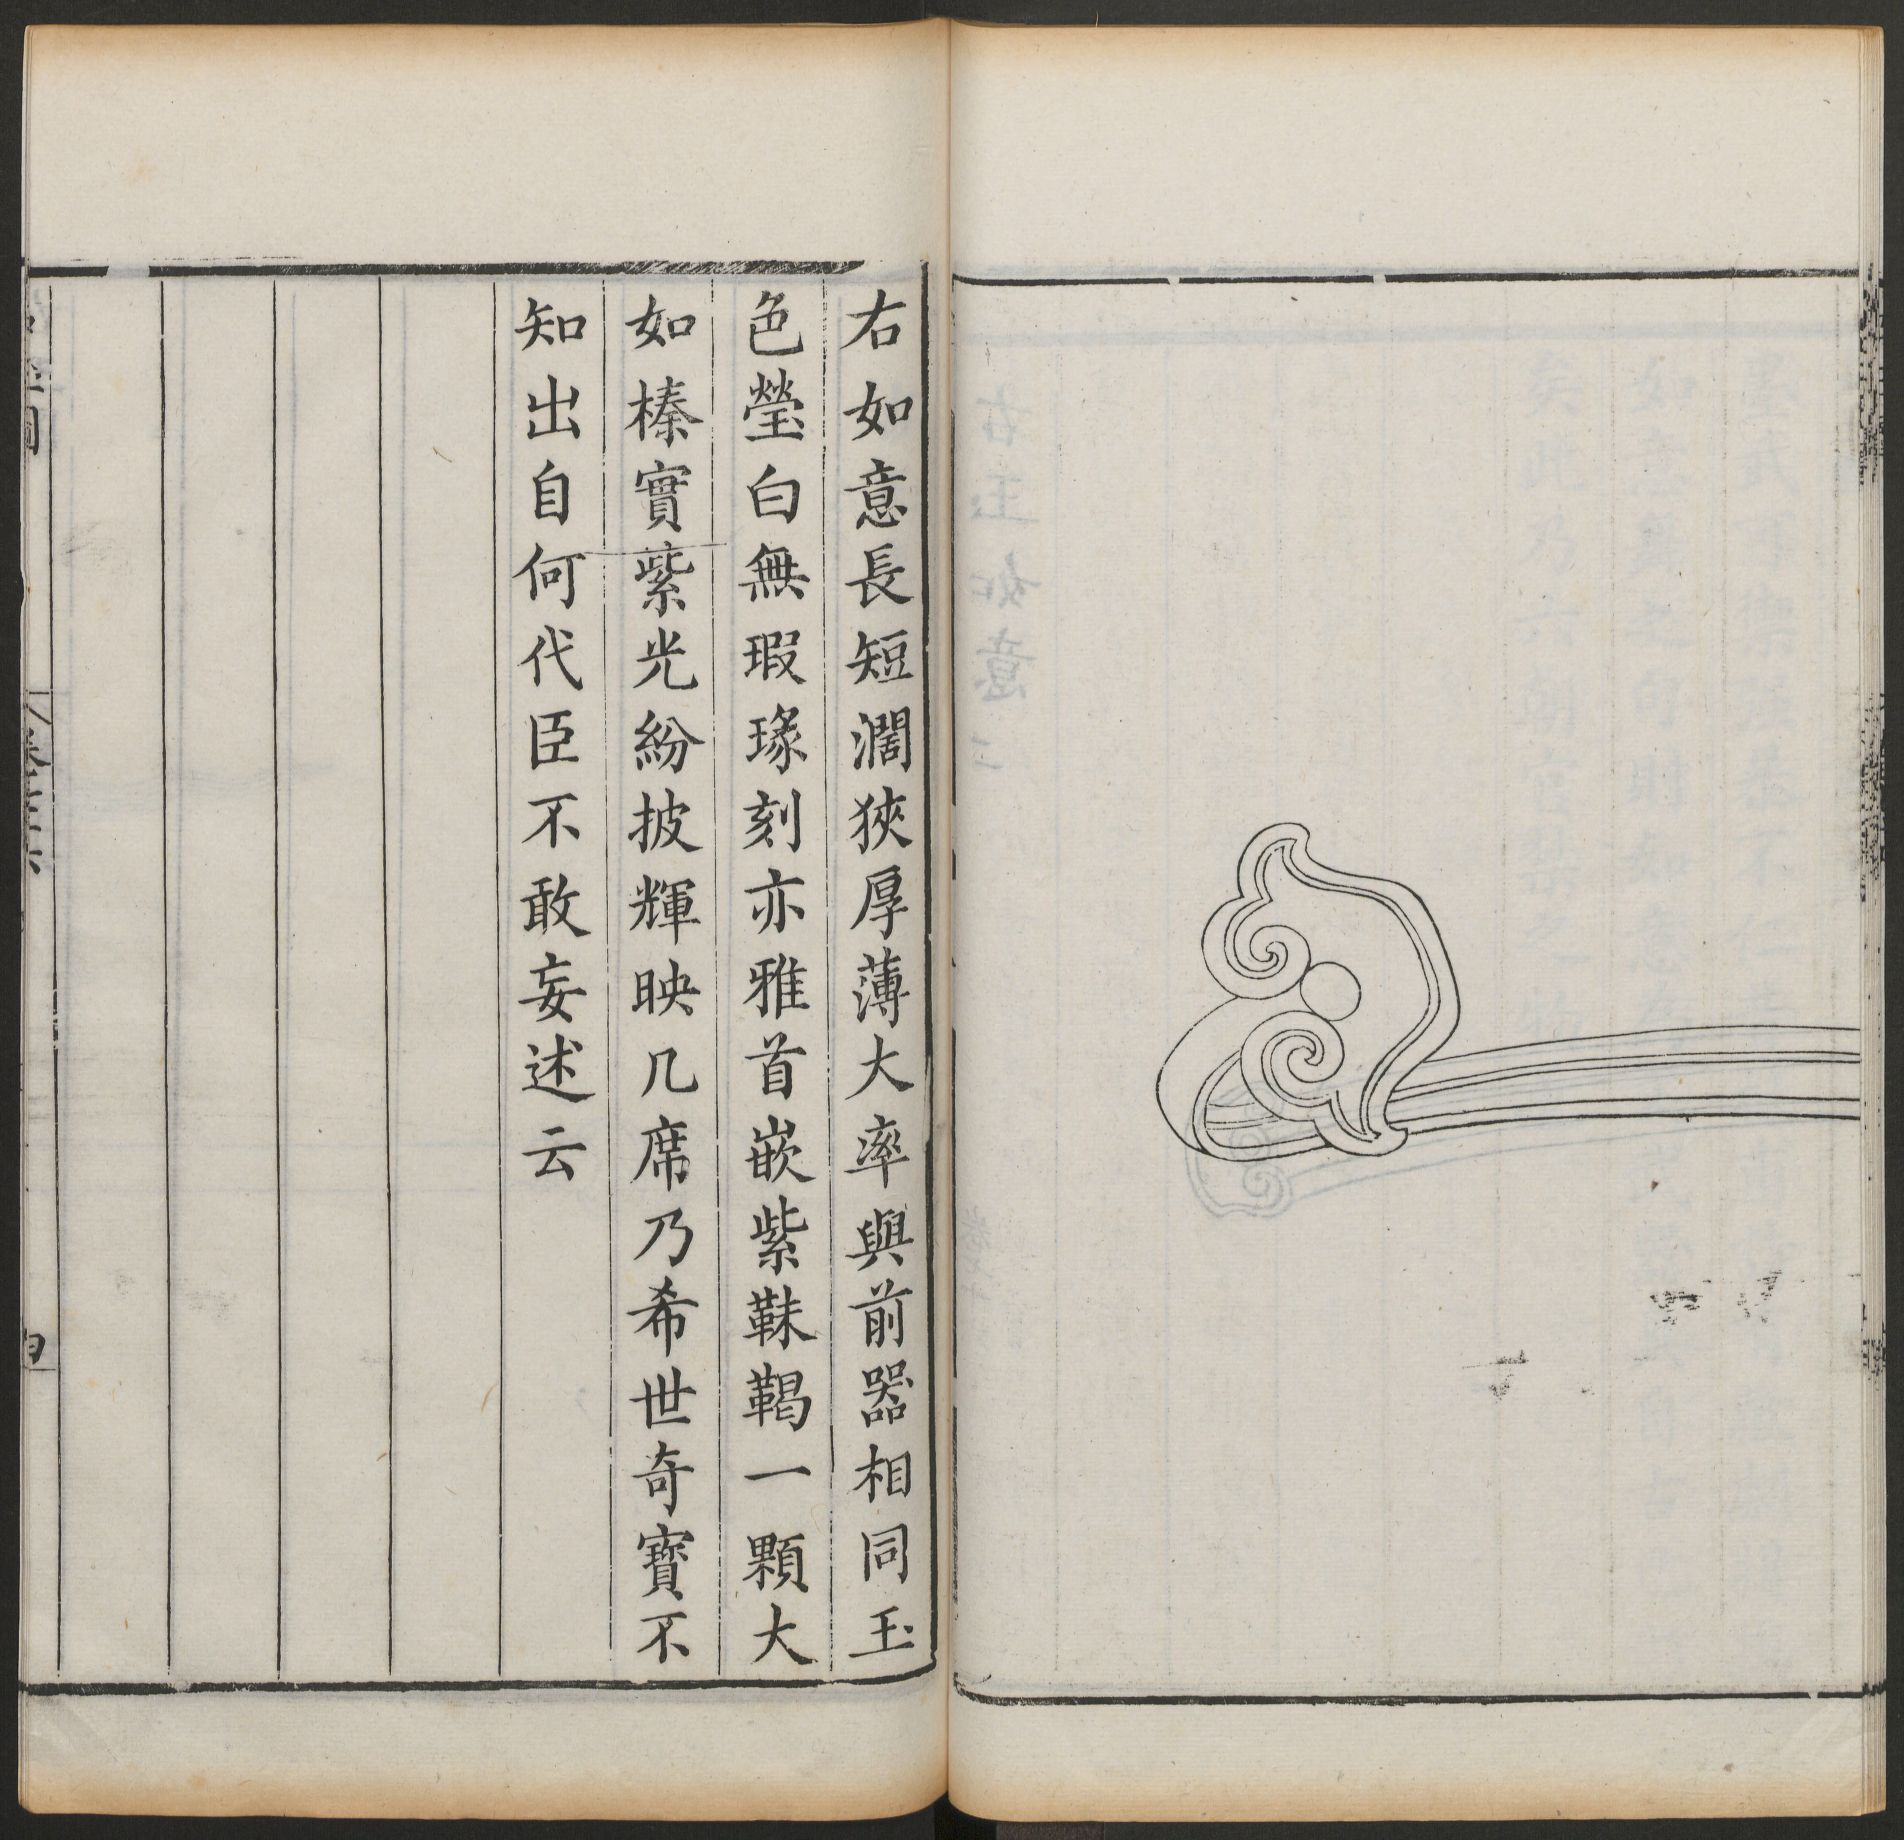 右如意長短濶狹厚薄大率與前器相同玉
色瑩白無瑕瑑刻亦雅首嵌紫靺鞨一顆大
如榛實紫光紛披輝映几席乃希世奇寶不
知出自何代臣不敢妄述云